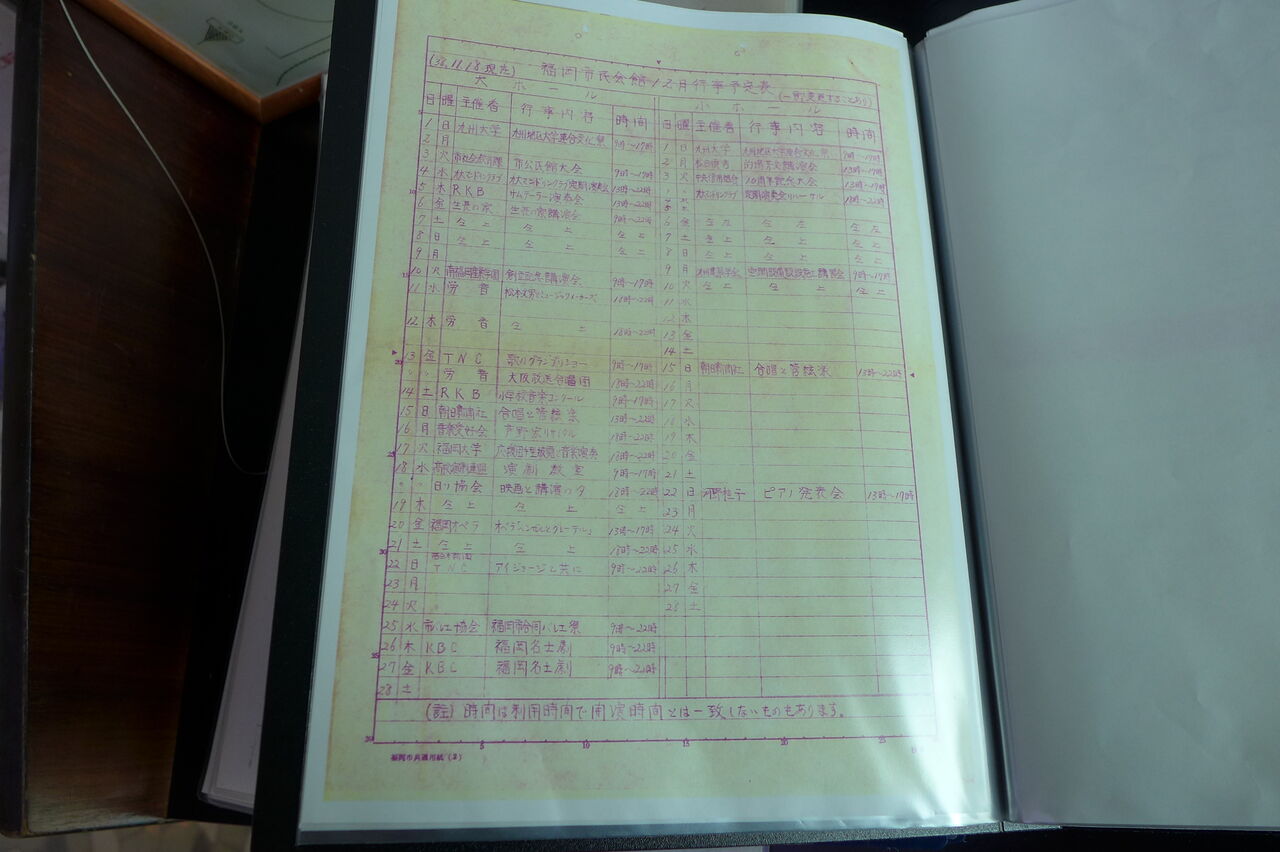 (38.11.18現在) 福岡市民会館12月行事予定表 (一部変更することあり)
大ホール 小ホール
日 曜 主催者 行事内容 時間 日 曜 主催者 行事内容 時間
1 日 九州大学 九州地区大学連合文化祭 9時~17時 1 日 九州大学 九州地区大学連合文化祭 9時~17時
2 月 2 月 講演会 13時~17時
3 火 市社会教育課 市公民館大会 9時~17時 3 火 中央信用組合 10周年記念大会 13時~17時
4 水 九大マンドリンクラブ 九大マンドリンクラブ定期演奏会 13時~22時 九大マンドリンクラブ 定期演奏会リハーサル 18時~22時
5 木 RKB サムテーラー演奏会 13時~22時
6 金 生長の家 生長の家講演会 9時~22時 6 金 仝左 仝左 仝左
7 土 仝上 仝上 仝上 7 土 仝上 仝上 仝上
8 日 仝上 仝上 仝上 8 日 仝上 仝上 仝上
9 月 9 月 9時~17時
10 火 創立記念講演会 9時~17時 10 火 仝上 仝上 仝上
11 水 労音 松本文男とミュージックメーカーズ 18時~22時 11 水
12 木 労音 仝上 18時~22時 12 木
13 金
14 土
13 金 TNC 歌のグランプリショー 9時~17時 15 日 朝日新聞社 合唱と管絃楽 13時~22時
〃 〃 労音 大阪放送合唱団 18時~22時 16 月
14 土 RKB 小学校音楽コンクール 9時~17時 17 火
15 日 朝日新聞社 合唱と管絃楽 13時~22時 18 水
16 月 音楽愛好会 芦野宏リサイタル 18時~22時 19 木
17 火 福岡大学 13時~22時 20 金
18 水 高校演劇連盟 演劇教室 9時~17時 21 土
〃 〃 日ソ協会 映画と講演の夕 18時~22時 22 日 河野桂子 ピアノ発表会 13時~17時
19 木 仝上 仝上 仝上 23 月
20 金 福岡オペラ オペラ「ヘンゼルとグレーテル」 13時~17時 24 火
21 土 仝上 仝上 18時~22時 25 水
22 日 TNC アイジョージと共に 9時~22時 26 木
23 月 27 金
24 火 28 土
25 水 市バレエ協会 福岡市合同バレエ祭 9時~22時
26 木 KBC 福岡名士劇 9時~22時
27 金 KBC 福岡名士劇 9時~22時
28 土
(註) 時間は利用時間で開演時間とは一致しないものもあります。
5 10 15 20 25
福岡市共通用紙(2)